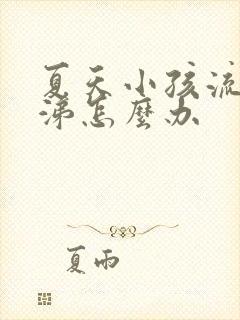 夏天小孩流
涕怎麼办
夏雨